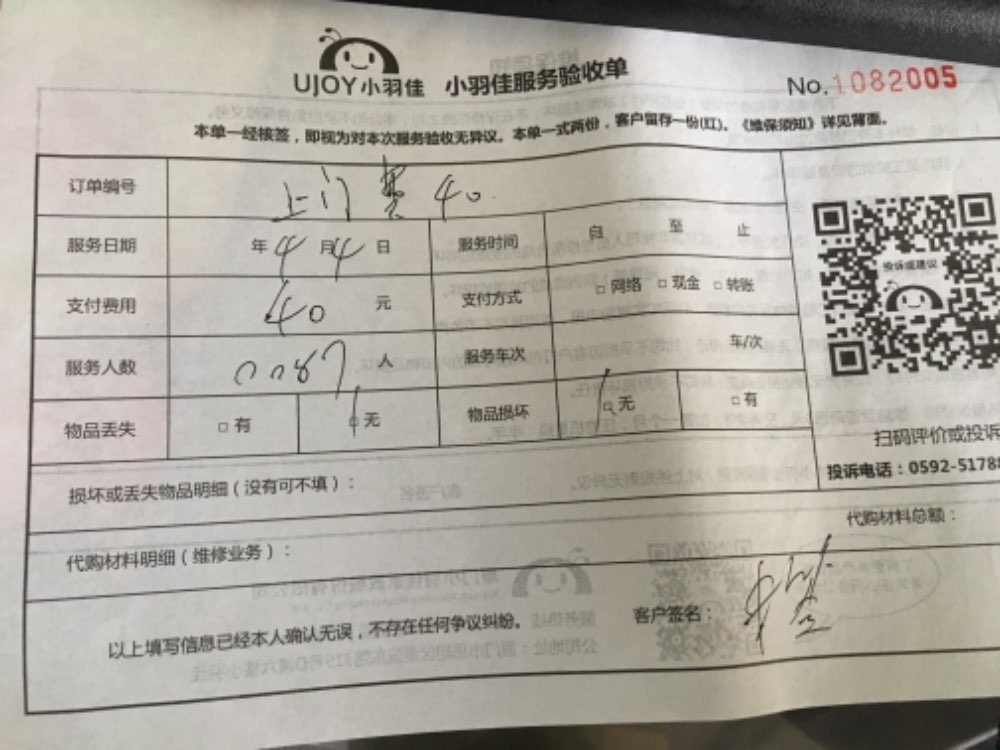 UJOY小羽佳 小羽佳服务验收单 No.1082005
本单一经核签，即视为对本次服务验收无异议。本单一式两份，客户留存一份(红)。《维保须知》详见背面。
订单编号 上门 40
服务日期 年4月4日 服务时间 自 至 止
支付费用 40 元 支付方式 □网络 □现金 □转账
服务人数 0087 人 服务车次 车/次
物品丢失 □有 □无 物品损坏 □无 □有
投诉或建议
扫码评价或投诉
投诉电话：0592-5178
损坏或丢失物品明细（没有可不填）：
代购材料明细（维修业务）： 代购材料总额：
以上填写信息已经本人确认无误，不存在任何争议纠纷。 客户签名：